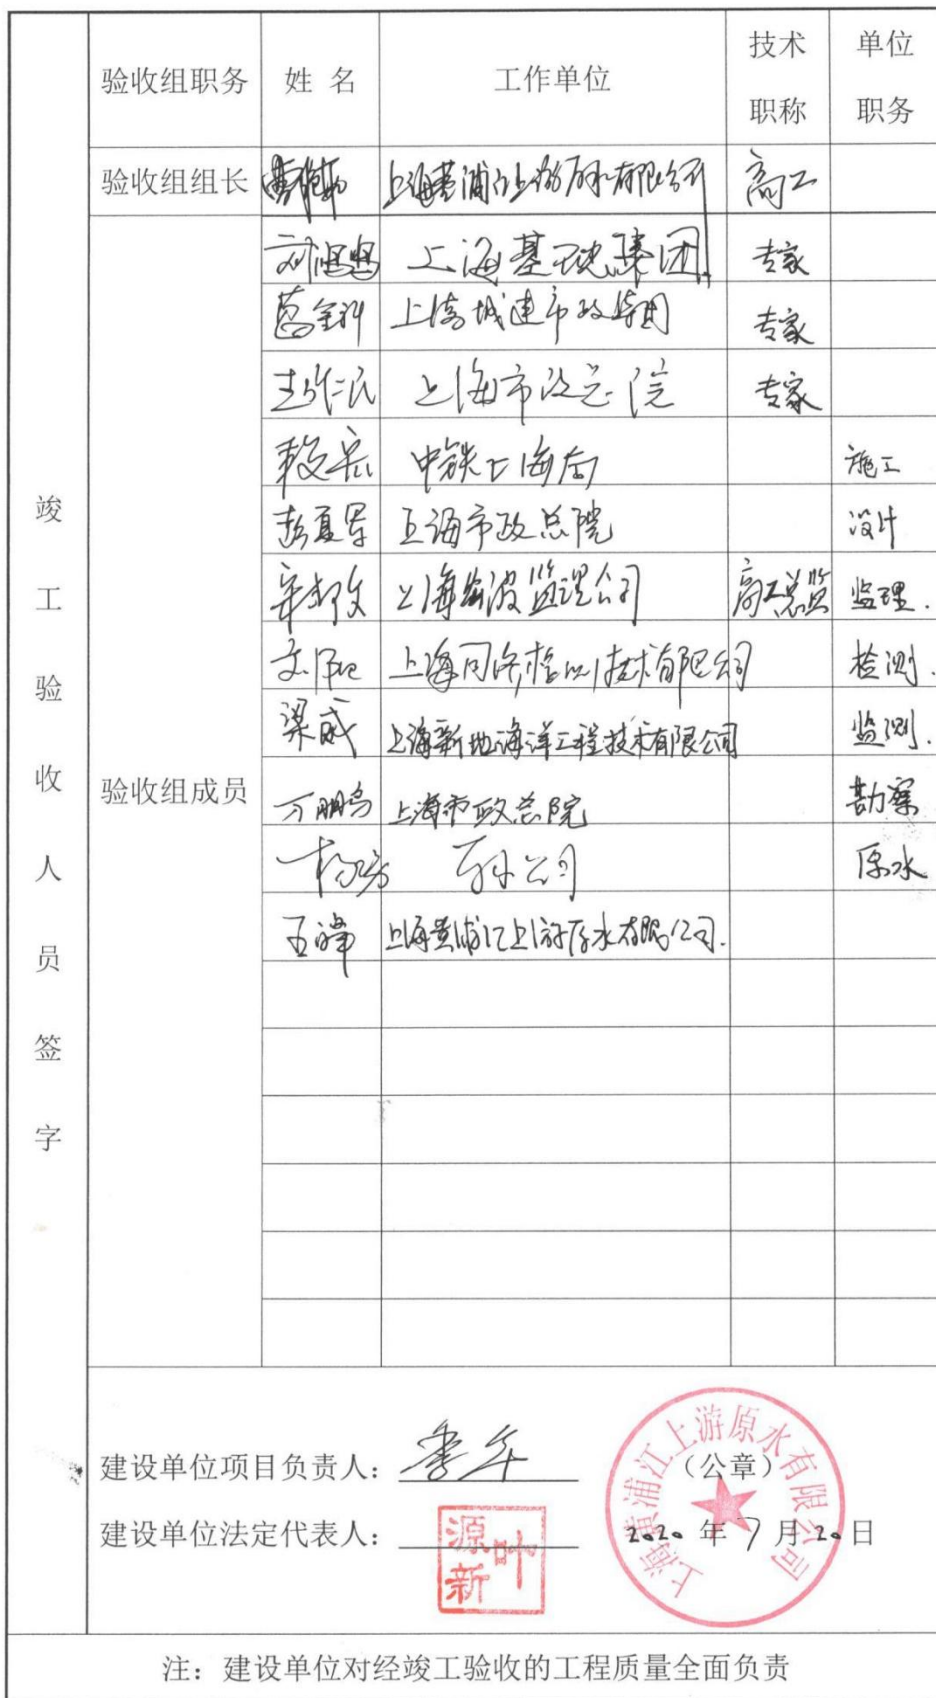 竣工验收人员签字
验收组职务 姓 名 工作单位 技术职称 单位职务
验收组组长 上海黄浦江上游原水有限公司 高工
验收组成员
上海基础集团 专家
葛金科 上海城建市政集团 专家
上海市政总院 专家
中铁上海局 施工
彭夏军 上海市政总院 设计
上海宏波监理公司 高工总监 监理.
上海同济检测技术有限公司 检测.
梁威 上海新地海洋工程技术有限公司 监测.
万鹏 上海市政总院 勘察
原水公司 原水
王峰 上海黄浦江上游原水有限公司.
建设单位项目负责人:
建设单位法定代表人: 叶源新
上海黄浦江上游原水有限公司
(公章)
2020 年 7 月 20 日
注: 建设单位对经竣工验收的工程质量全面负责